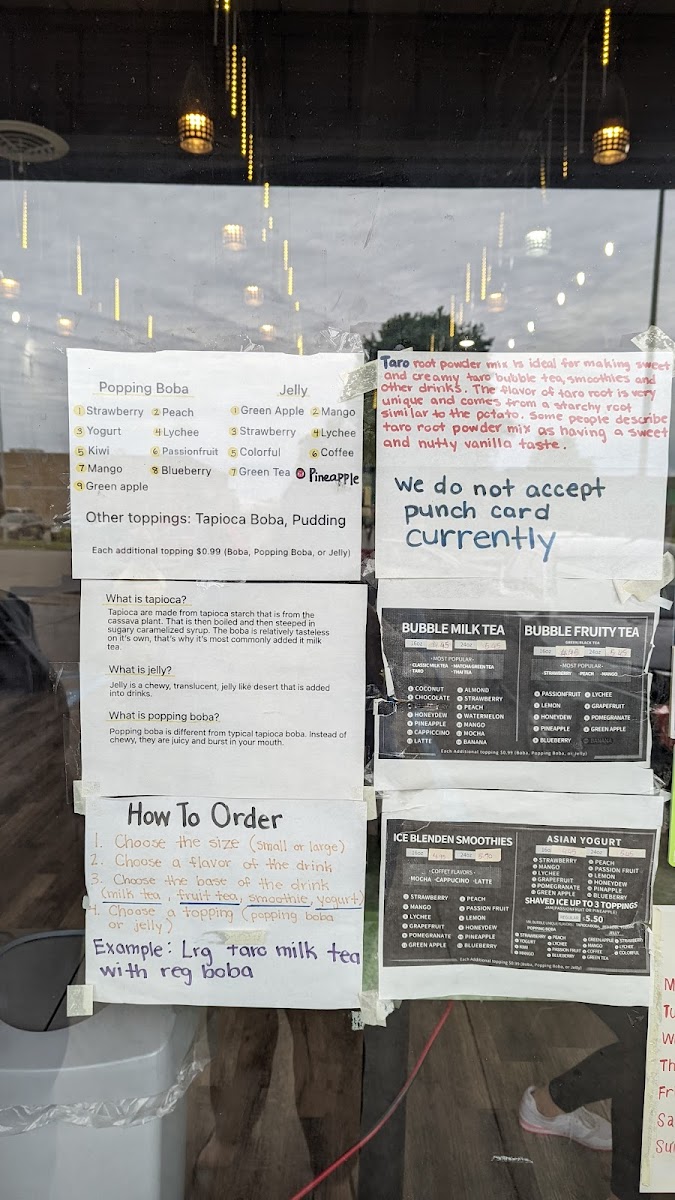 Popping Boba
Jelly
1 Strawberry 2 Peach
3 Yogurt 4 Lychee
5 Kiwi 6 Passionfruit
7 Mango 8 Blueberry
9 Green apple
1 Green Apple 2 Mango
3 Strawberry 4 Lychee
5 Colorful 6 Coffee
7 Green Tea Pineapple
Other toppings: Tapioca Boba, Pudding
Each additional topping $0.99 (Boba, Popping Boba, or Jelly)
Taro root powder mix is ideal for making sweet
and creamy taro bubble tea, smoothies and
other drinks. The flavor of taro root is very
unique and comes from a starchy root
similar to the potato. Some people describe
taro root powder mix as having a sweet
and nutty vanilla taste.
We do not accept
punch card
currently
What is tapioca?
Tapioca are made from tapioca starch that is from the
cassava plant. That is then boiled and then steeped in
sugary caramelized syrup. The boba is relatively tasteless
on it's own, that's why it's most commonly added it milk
tea.
What is jelly?
Jelly is a chewy, translucent, jelly like desert that is added
into drinks.
What is popping boba?
Popping boba is different from typical tapioca boba. Instead of
chewy, they are juicy and burst in your mouth.
BUBBLE MILK TEA
16oz 24oz
- MOST POPULAR -
· CLASSIC MILK TEA · MATCHA GREEN TEA
· TARO · THAI TEA
COCONUT
CHOCOLATE
HONEYDEW
PINEAPPLE
CAPPICCINO
LATTE
ALMOND
STRAWBERRY
PEACH
WATERMELON
MANGO
MOCHA
BANANA
BUBBLE FRUITY TEA
16oz 24oz
- MOST POPULAR -
· STRAWBERRY · PEACH · MANGO
PASSIONFRUIT
LEMON
HONEYDEW
PINEAPPLE
BLUEBERRY
LYCHEE
GRAPEFRUIT
POMEGRANATE
GREEN APPLE
Each Additional topping $0.99 (Boba, Popping Boba, or Jelly)
How To Order
1. Choose the size (small or large)
2. Choose a flavor of the drink
3. Choose the base of the drink
(milk tea, fruit tea, smoothie, yogurt)
4. Choose a topping (popping boba
or jelly)
Example: Lrg taro milk tea
with reg boba
ICE BLENDEN SMOOTHIES
16oz 24oz
- COFFET FLAVORS -
MOCHA · CAPPUCINO · LATTE
STRAWBERRY
MANGO
LYCHEE
GRAPEFRUIT
POMEGRANATE
GREEN APPLE
PEACH
PASSION FRUIT
LEMON
HONEYDEW
PINEAPPLE
BLUEBERRY
ASIAN YOGURT
16oz 24oz
STRAWBERRY
MANGO
LYCHEE
GRAPEFRUIT
POMEGRANATE
GREEN APPLE
PEACH
PASSION FRUIT
LEMON
HONEYDEW
PINEAPPLE
BLUEBERRY
SHAVED ICE UP TO 3 TOPPINGS
$5.50
Each Additional topping $0.99 (Boba, Popping Boba, or Jelly)
M
Tu
W
Th
Fr
Sa
Su